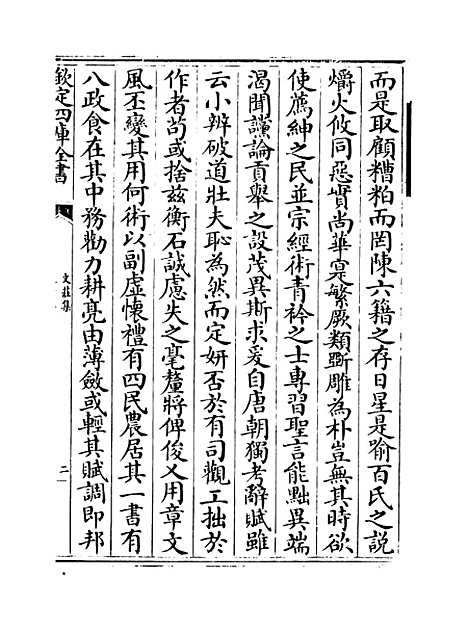 而是取顧糟粕而罔陳六籍之存日星是踰百氏之說
爝火攸同惡實尚華寔繁厥類斵雕為朴豈無其時欲
使薦紳之民並宗經術青衿之士專習聖言能黜異端
渴聞讜論貢舉之設茂異斯求爰自唐朝獨考辭賦雖
云小辨破道壯夫恥為然而定妍否於有司觀工拙於
作者茍或捨兹衡石誠慮失之毫釐將俾俊乂用章文
風丕變其用何術以副虛懷禮有四民農居其一書有
八政食在其中務勸力耕亮由薄斂或輕其賦調即邦
欽定四庫全書
文莊集
二